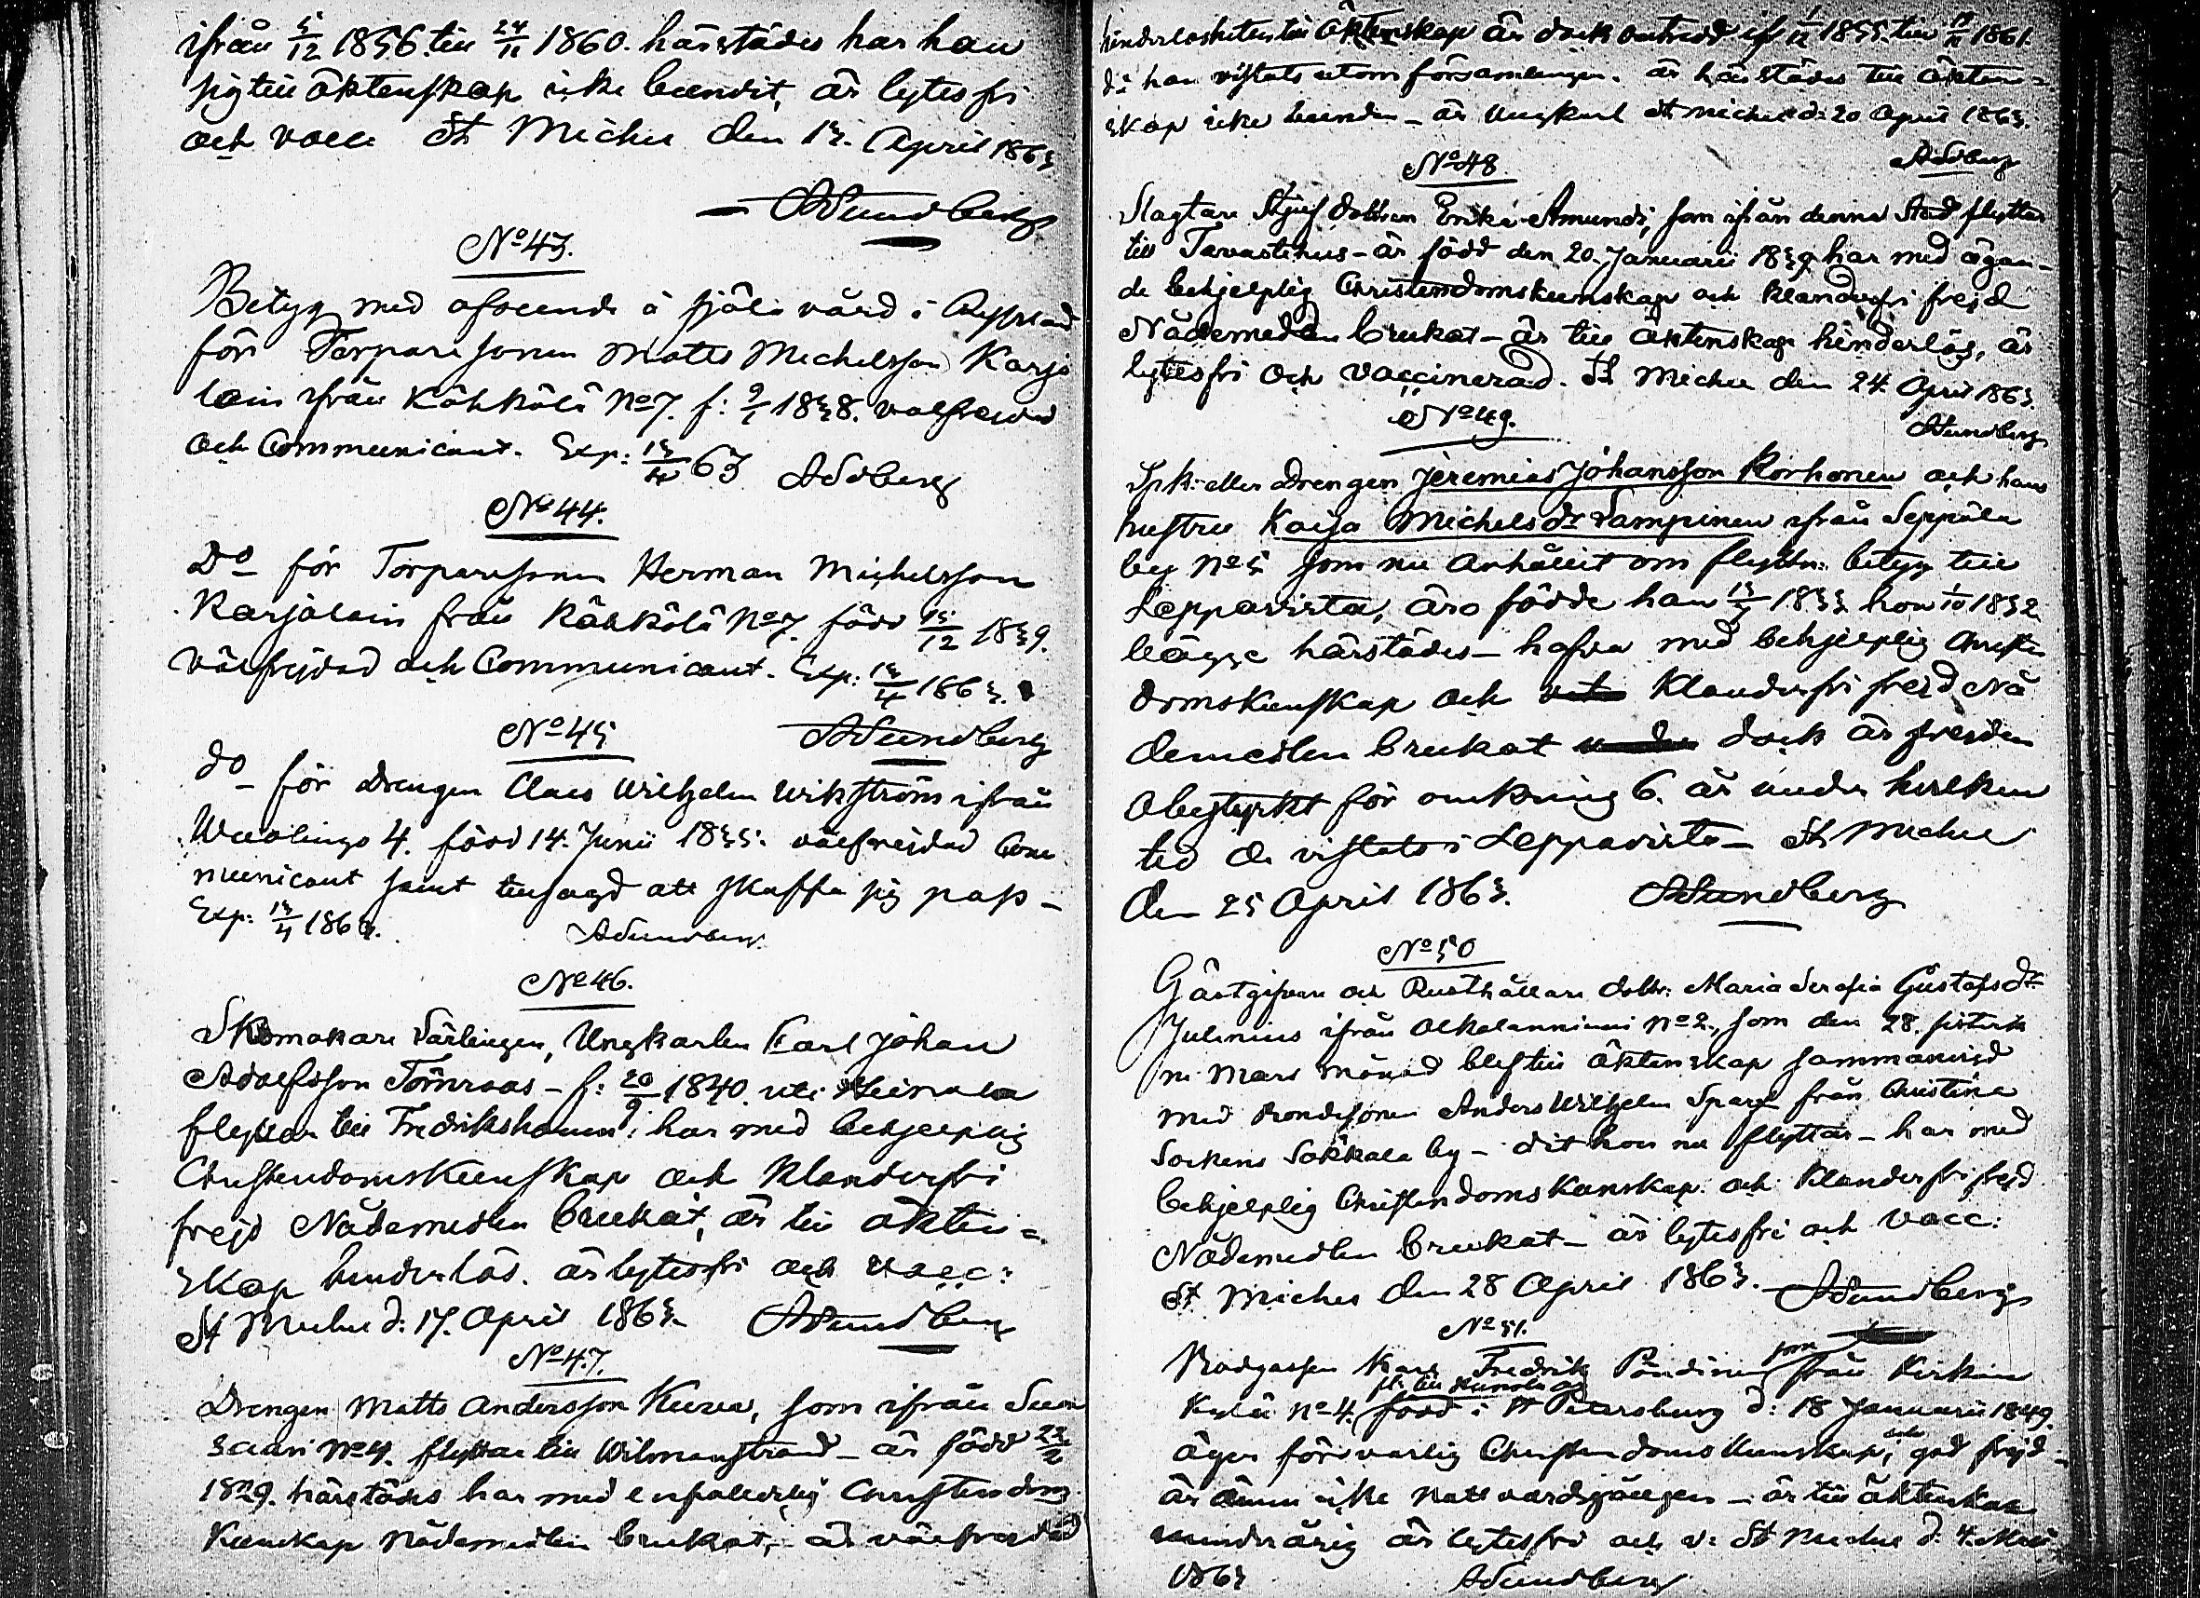 ifrån 5/12 1856 till 24/11 1860. härstädes har han
sig till äktenskap icke bundit, är lytesfri
och vacc. St Michel den 13. April 1863
ASundberg
No 43.
Betyg med afseende å själavård i Ryssland
för Torparesonen Matts Michelsson Karja
lain ifrån Kähkölä No 7. f: 9/1 1838. välfrejdad
och Communicant. Exp: 13/4 63 ASdberg
No 44.
Do för Torparesonen Herman Michelsson
Karjalain från Kähkölä No 7. född 15/12 1839.
välfrejdad och Communicant. Exp: 13/4 1863.
No 45 ASundberg
do för Drengen Claes Wilhelm Wikström ifrån
4. född 14. Junii 1835. välfrejdad Com
municant samt tillsagd att skaffa sig pass -
Exp: 13/4 1863. ASundberg
No 46.
Skomakare Lärlingen, Ungkarlen Karl Johan
Adolfsson Törnroos - f: 20/9 1840. uti Heinola
flyttar till Fredrikshamn; har med behjelplig
Christendomskunskap och klanderfri
frejd Nådemedlen brukat, är till äkten=
skap hinderlös. är lytesfri och vacc:
St Michel d: 17. April 1863. ASundberg
No 47.
Drengen Matts Andersson Kurva, som ifrån Suon
saari No 4. flyttar till Wilmanstrand - är född 22/2
1829. härstädes har med Christendoms
kunskap Nådemedlen brukat, är välfrejdad
hinderlösheten till äktenskap är dock 1/12 1855. till 1861.
då han vistats utom församlingen. är härstädes till äkten=
skap icke bunden - är Ungkarl St Michel d: 20 April 1863.
No 48. ASdberg
Slagtare Erika Amunds, som ifrån denna Stad flyttar
till Tavastehus - är född den 20. Januarii 1839 har med ägan-
de behjelplig Christendomskunskap och klanderfri frejd
Nådemedlen brukat - är till äktenskap hinderlös, är
lytesfri och vaccinerad. St Michel den 24. April 1863.
No 49. ASundberg
eller Drengen Jeremias Johansson Korhonen och hans
hustru Kaisa Michelsdr Lampinen ifrån Seppälä
by No 5 som nu anhållit om flyttn: betyg till
Leppävirta, äro födde han 1833 hon 1/10 1832
bägge härstädes - hafva med behjelplig Christen
domskunskap och klanderfri frejd Nå
demedlen brukat dock är frejden
obestyrkt för omkring 6. år under hvilken
tid de vistats i Leppävirta - St Michel
den 25 April 1863. ASundberg
No 50
Gästgifvare och Rusthållare dottr: Maria Serafia Gustafsdr
Julinius ifrån Alkalanniemi No 2., som den 28. sistvik
ne Mars månad blef till äktenskap sammanvigd
med Bondesonen Anders Wilhelm från Christina
Sockens Sokkala by - dit hon nu flyttar - har med
behjelplig Christendomskunskap och klanderfri frejd
Nådemedlen brukat - är lytesfri och vacc:
St Michel den 28 April 1863. ASundberg
No 51.
Karl Fredrik Pöndinen som från Kirkon
kylä No 4. född i St Petersburg d: 18 Januarii 1849.
äger försvarlig Christendoms kunskap, och god frejd -
är ännu icke nattvardsgången - är till äktenskap
minderårig är lytesfri och v: St Michel d. 4. Maii
1863 ASundberg